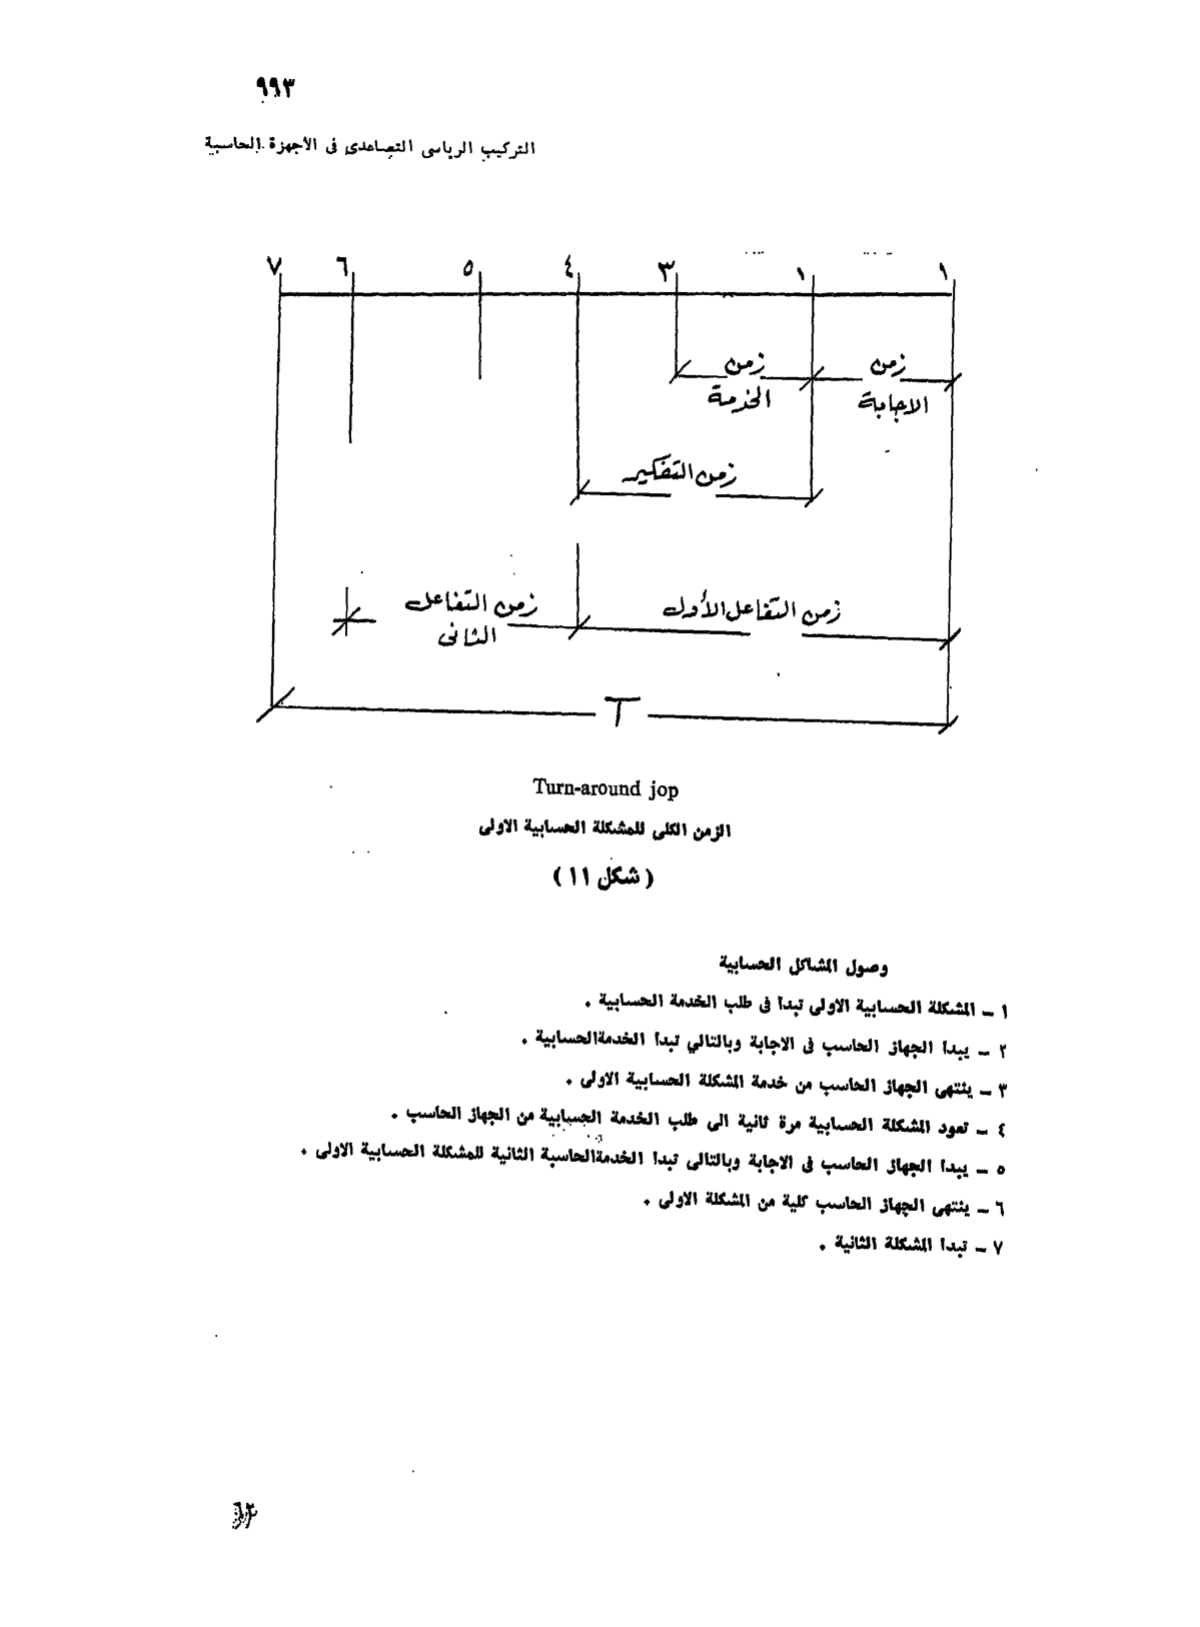 ٩٩٣
التركيب الرياسى التصاعدى فى الأجهزة الحاسبة
٧ ٦ ٥ ٤ ٣ ١ ١
زمن الاجابة
زمن الخدمة
زمن التفكير
زمن التفاعل الأول
زمن التفاعل الثانى
T
Turn-around jop
الزمن الكلى للمشكلة الحسابية الاولى
( شكل ١١ )
وصول المشاكل الحسابية
١ ـ المشكلة الحسابية الاولى تبدا فى طلب الخدمة الحسابية .
٢ ـ يبدا الجهاز الحاسب فى الاجابة وبالتالي تبدا الخدمةالحسابية .
٣ ـ ينتهى الجهاز الحاسب من خدمة المشكلة الحسابية الاولى .
٤ ـ تعود المشكلة الحسابية مرة ثانية الى طلب الخدمة الحسابية من الجهاز الحاسب .
٥ ـ يبدا الجهاز الحاسب فى الاجابة وبالتالى تبدا الخدمةالحاسبة الثانية للمشكلة الحسابية الاولى .
٦ ـ ينتهى الجهاز الحاسب كلية من المشكلة الاولى .
٧ ـ تبدا المشكلة الثانية .